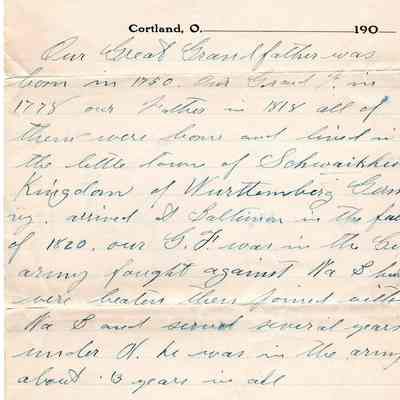 Cortland, O. 190
Our Great Grandfather was
born in 1750. Our Grand F. in
1778 our Father in 1818 all of
them were born and lived in
the little town of Schwaikhei
Kingdom of Wurttemberg Germ
ny. arrived at Baltimon in the fal
of 1820. our G. F was in the
army fought against Na
were beaten then joined with
Na and served several years
under N. he was in the army
about 13 years in all